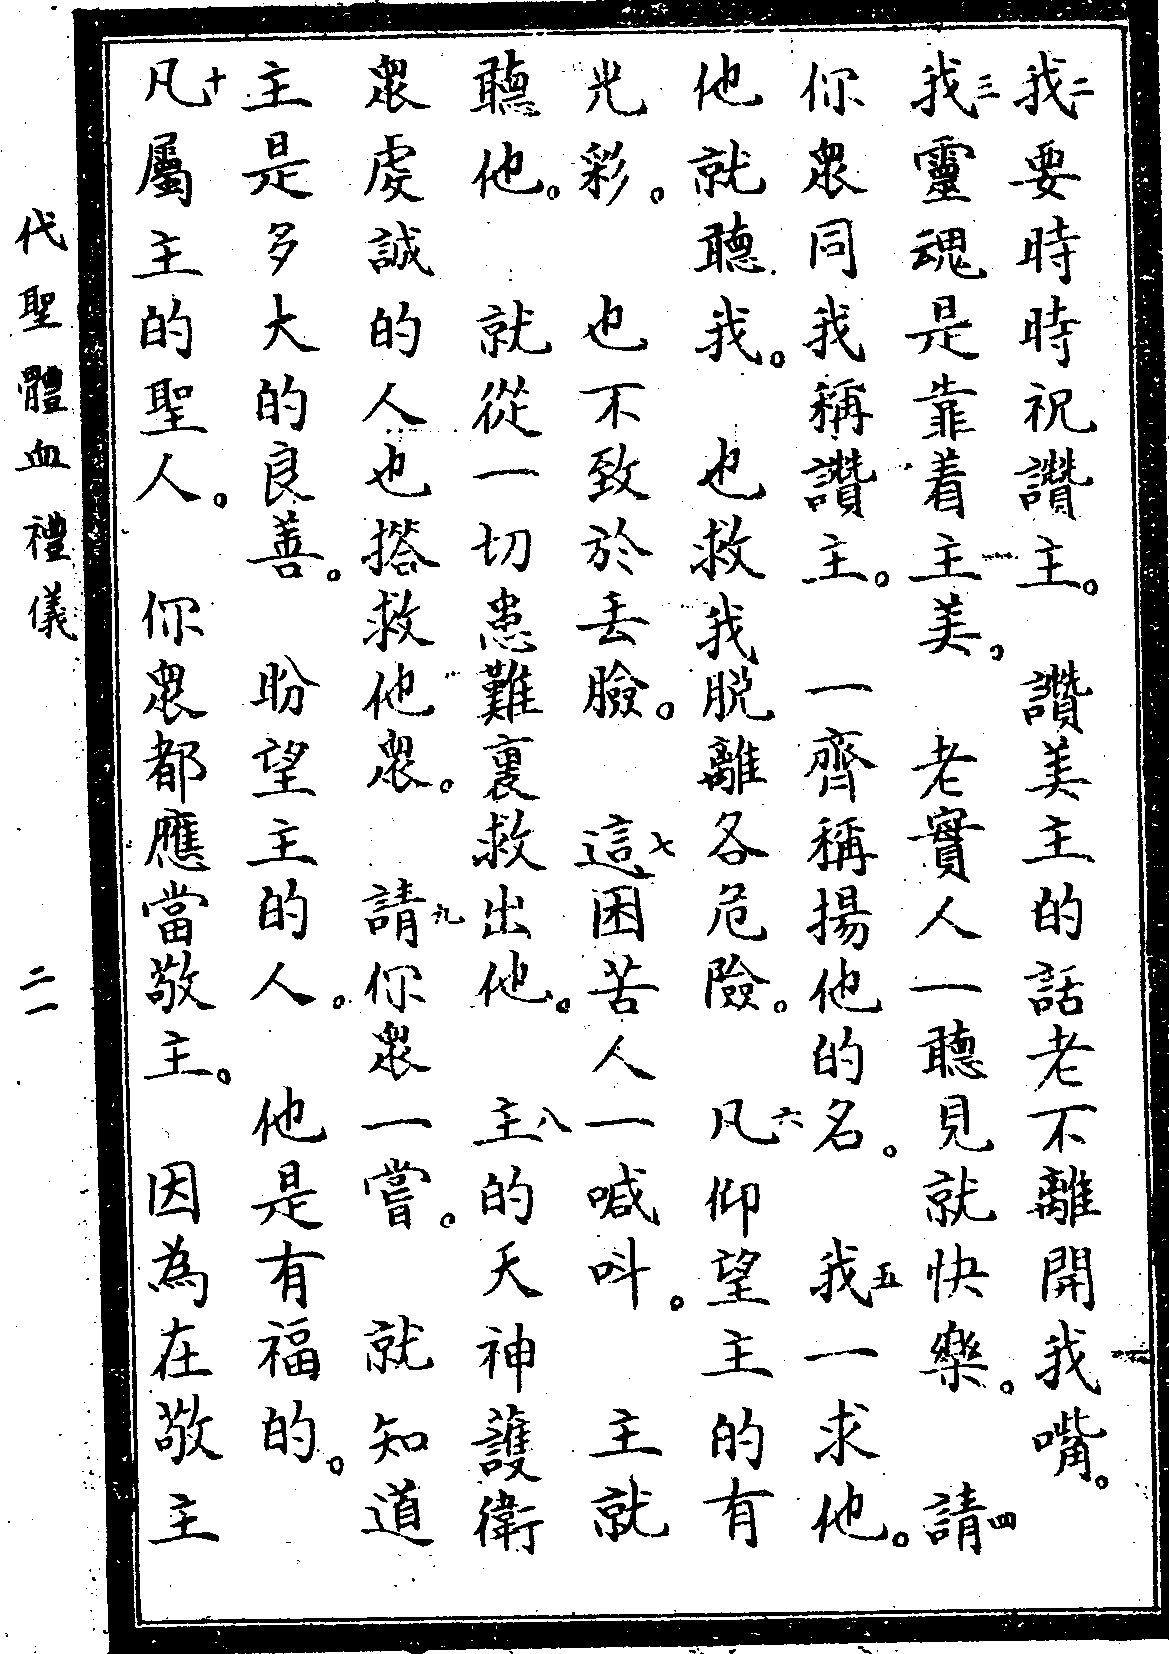 我二要時時祝讚主。　讚美主的話老不離開我嘴。
我三靈魂是靠着主美。　老實人一聽見就快樂。　請四
你衆同我稱讚主。　一齊稱揚他的名。　我五一求他。
他就聽我。　也救我脱離各危險。　凡六仰望主的有
光彩。　也不致於丢臉。　這七困苦人一喊呌。　主就
聽他。　就從一切患難裏救出他。　主八的天神護衛
衆虔誠的人也搭救他衆。　請九你衆一嘗。　就知道
主是多大的良善。　盼望主的人。　他是有福的。
凡十屬主的聖人。　你衆都應當敬主。　因為在敬主
代聖體血禮儀　二一